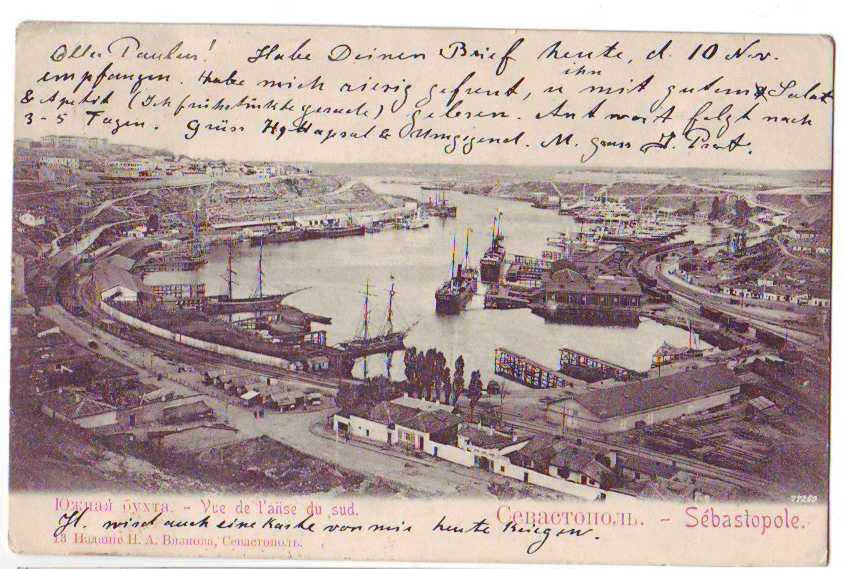 Olla Paulen! Habe Deinen Brief heute, d. 10 Nov.
empfangen. Habe mich riesig gefreut, u mit gutem Salat
ihn
& Apetit (Ich frühstükte gerade) gelesen. Antwort folgt nach
3-5 Tagen. Grüss Hg Hapsal & Umgigend. M. gruss H.
27260
Южная бухта. - Vue de l'anse du sud.
Севастополь. - Sébastopole.
H. wird auch eine Karte von mir heute kriegen.
13 Изданіе Н. А. Виѳнова, Севастополь.